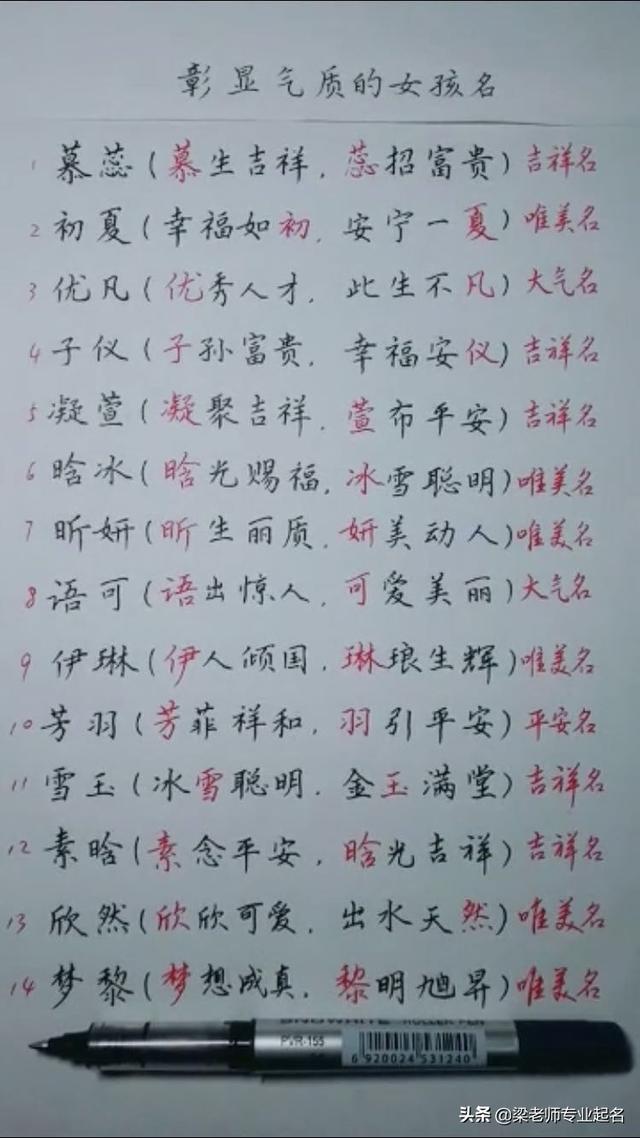 彰显气质的女孩名
1 慕蕊(慕生吉祥,蕊招富贵)吉祥名
2 初夏(幸福如初,安宁一夏)唯美名
3 优凡(优秀人才,此生不凡)大气名
4 子仪(子孙富贵,幸福安仪)吉祥名
5 凝萱(凝聚吉祥,萱布平安)吉祥名
6 晗冰(晗光赐福,冰雪聪明)唯美名
7 昕妍(昕生丽质,妍美动人)唯美名
8 语可(语出惊人,可爱美丽)大气名
9 伊琳(伊人倾国,琳琅生辉)唯美名
10 芳羽(芳菲祥和,羽引平安)平安名
11 雪玉(冰雪聪明,金玉满堂)吉祥名
12 素晗(素念平安,晗光吉祥)吉祥名
13 欣然(欣欣可爱,出水天然)唯美名
14 梦黎(梦想成真,黎明旭昇)唯美名
SNOWHITE ROLLER PEN
PVR-155
6 920024 531240
头条 @梁老师专业起名